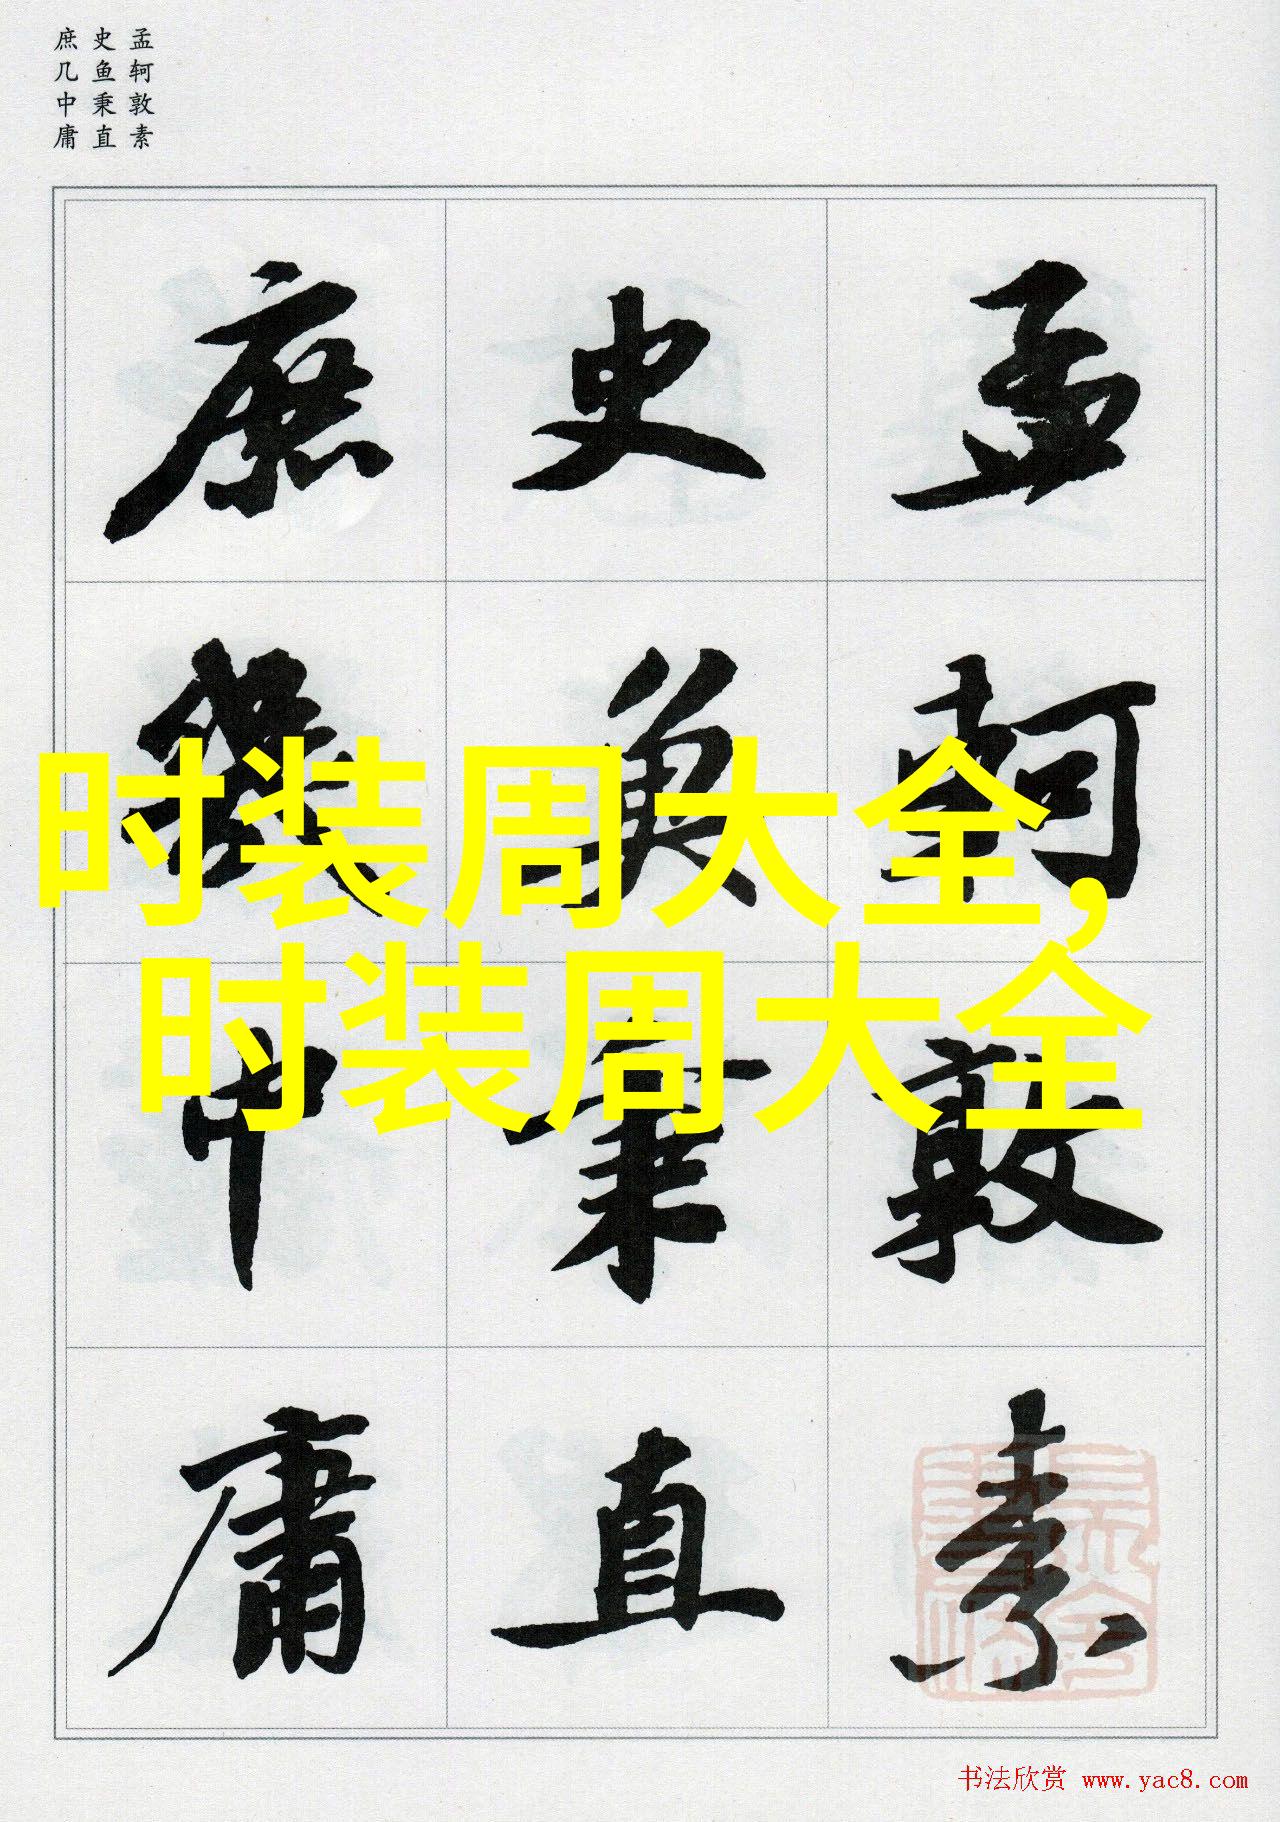 孟轲敦素
史鱼秉直
庶几中庸
孟軻敦素
史魚秉直
庶幾中庸
时装周大全,
时装周大全
书法欣赏 www.yac8.com